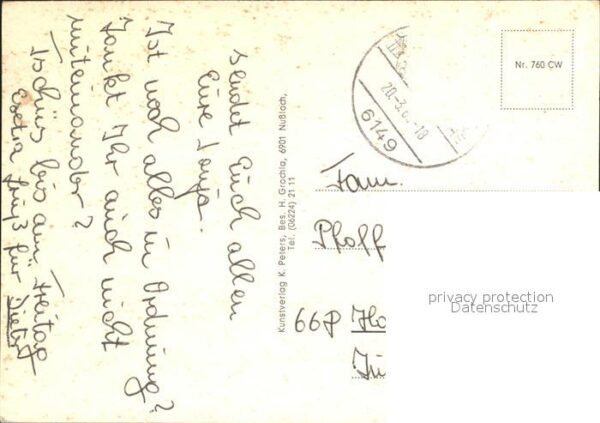 sendet Euch allen
Eure Sonja.
Ist noch alles in Ordnung?
Zankt Ihr auch nicht
miteinander?
Tschüs bis am Freitag
Extra Gruß für Dieter
Kunstverlag K. Peters, Bes. H. Grochla, 6901 Nußloch,
Tel. (06224) 21 11
20.-3.6 -18
6149
Nr. 760 CW
Fam.
Pfoff
668 Ho
privacy protection
Datenschutz